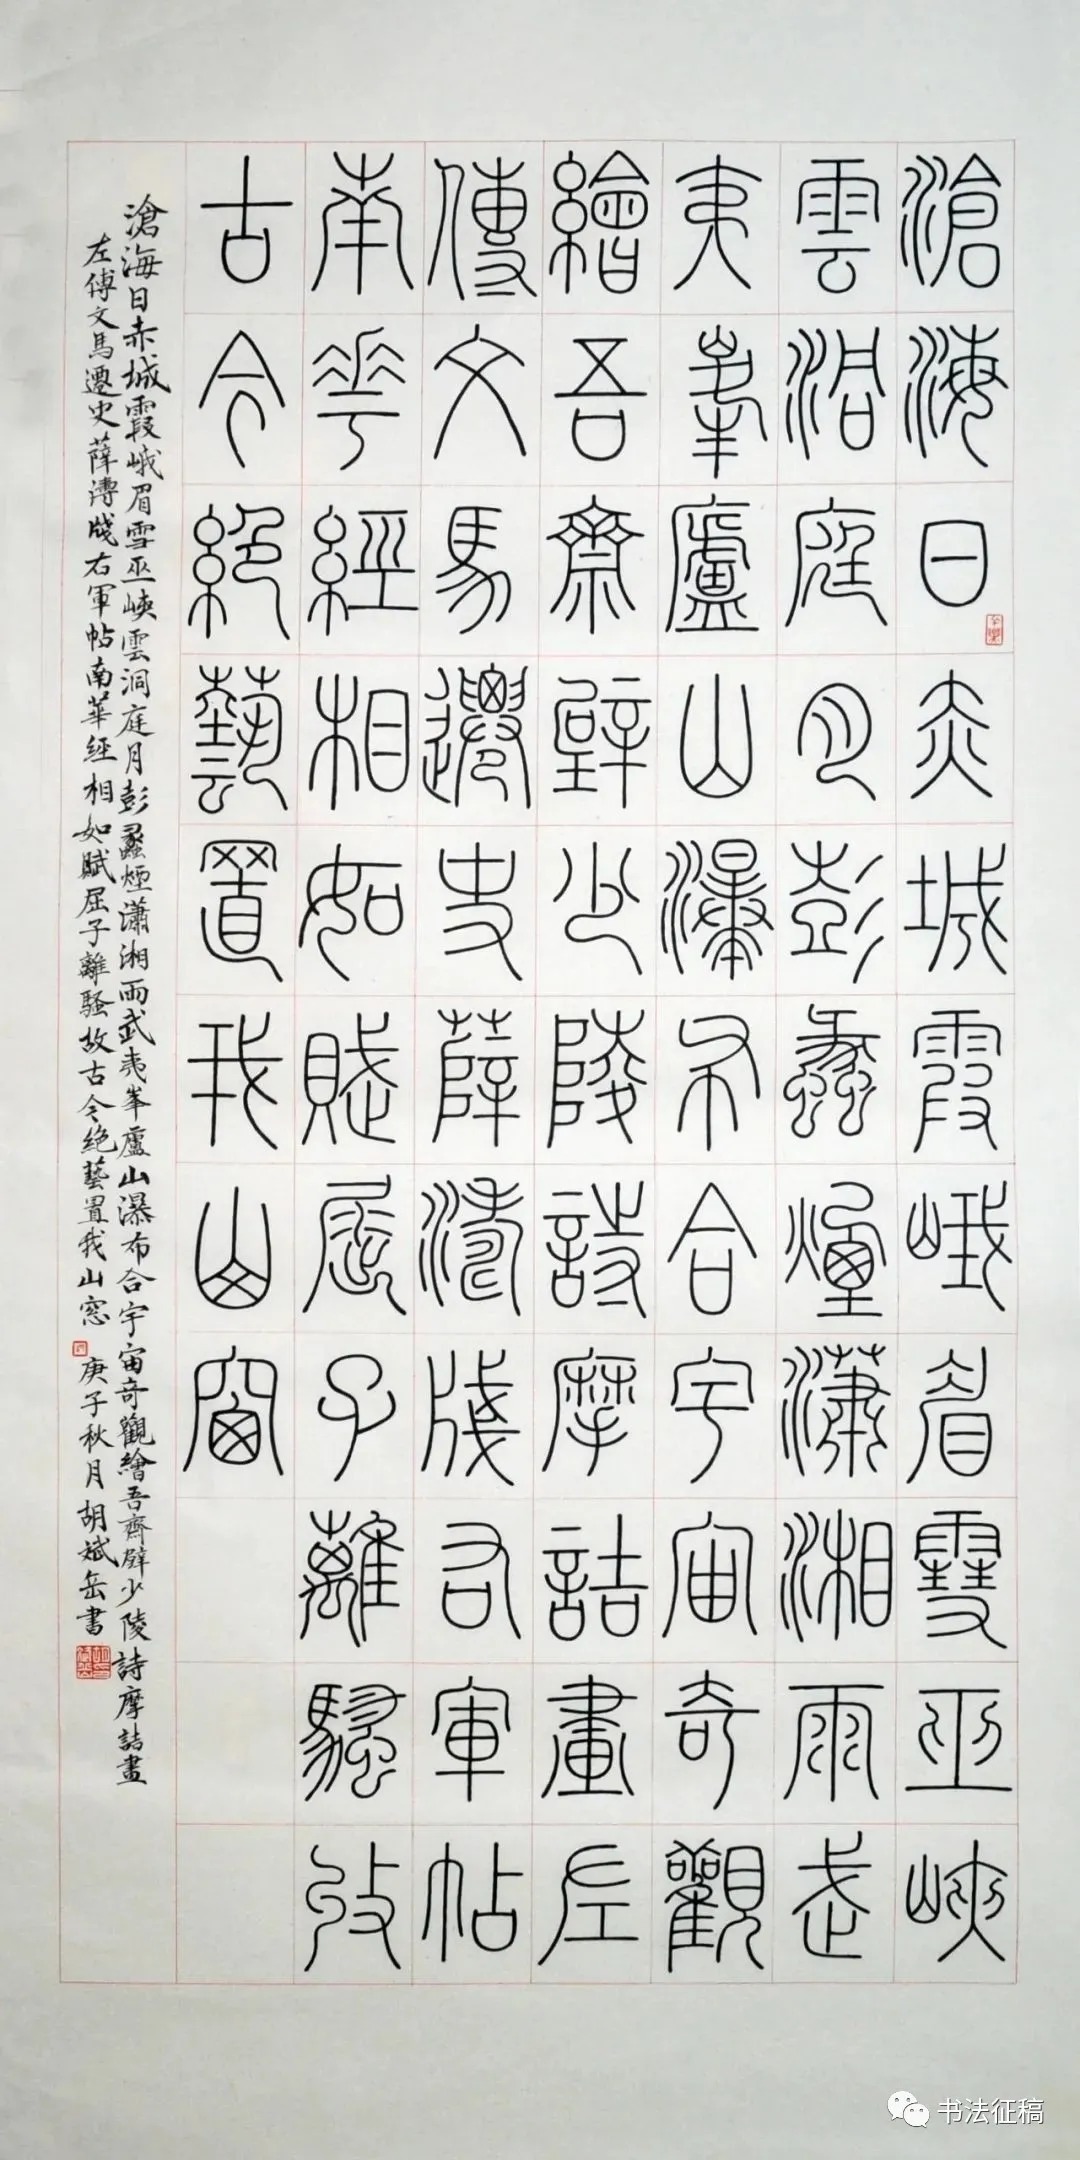 滄海日赤城霞峨眉雪巫峽
雲洞庭月彭蠡煙瀟湘雨武
夷峯廬山瀑布合宇宙奇觀
繪吾齋壁少陵詩摩詰畫左
傳文馬遷史薛濤牋右軍帖
南華經相如賦屈子離騷收
古今絕藝置我山窗
滄海日赤城霞峨眉雪巫峽雲洞庭月彭蠡煙瀟湘雨武夷峯廬山瀑布合宇宙奇觀繪吾齋壁少陵詩摩詰畫
左傳文馬遷史薛濤牋右軍帖南華經相如賦屈子離騷收古今绝藝置我山窓 庚子秋月胡斌岳書
书法征稿